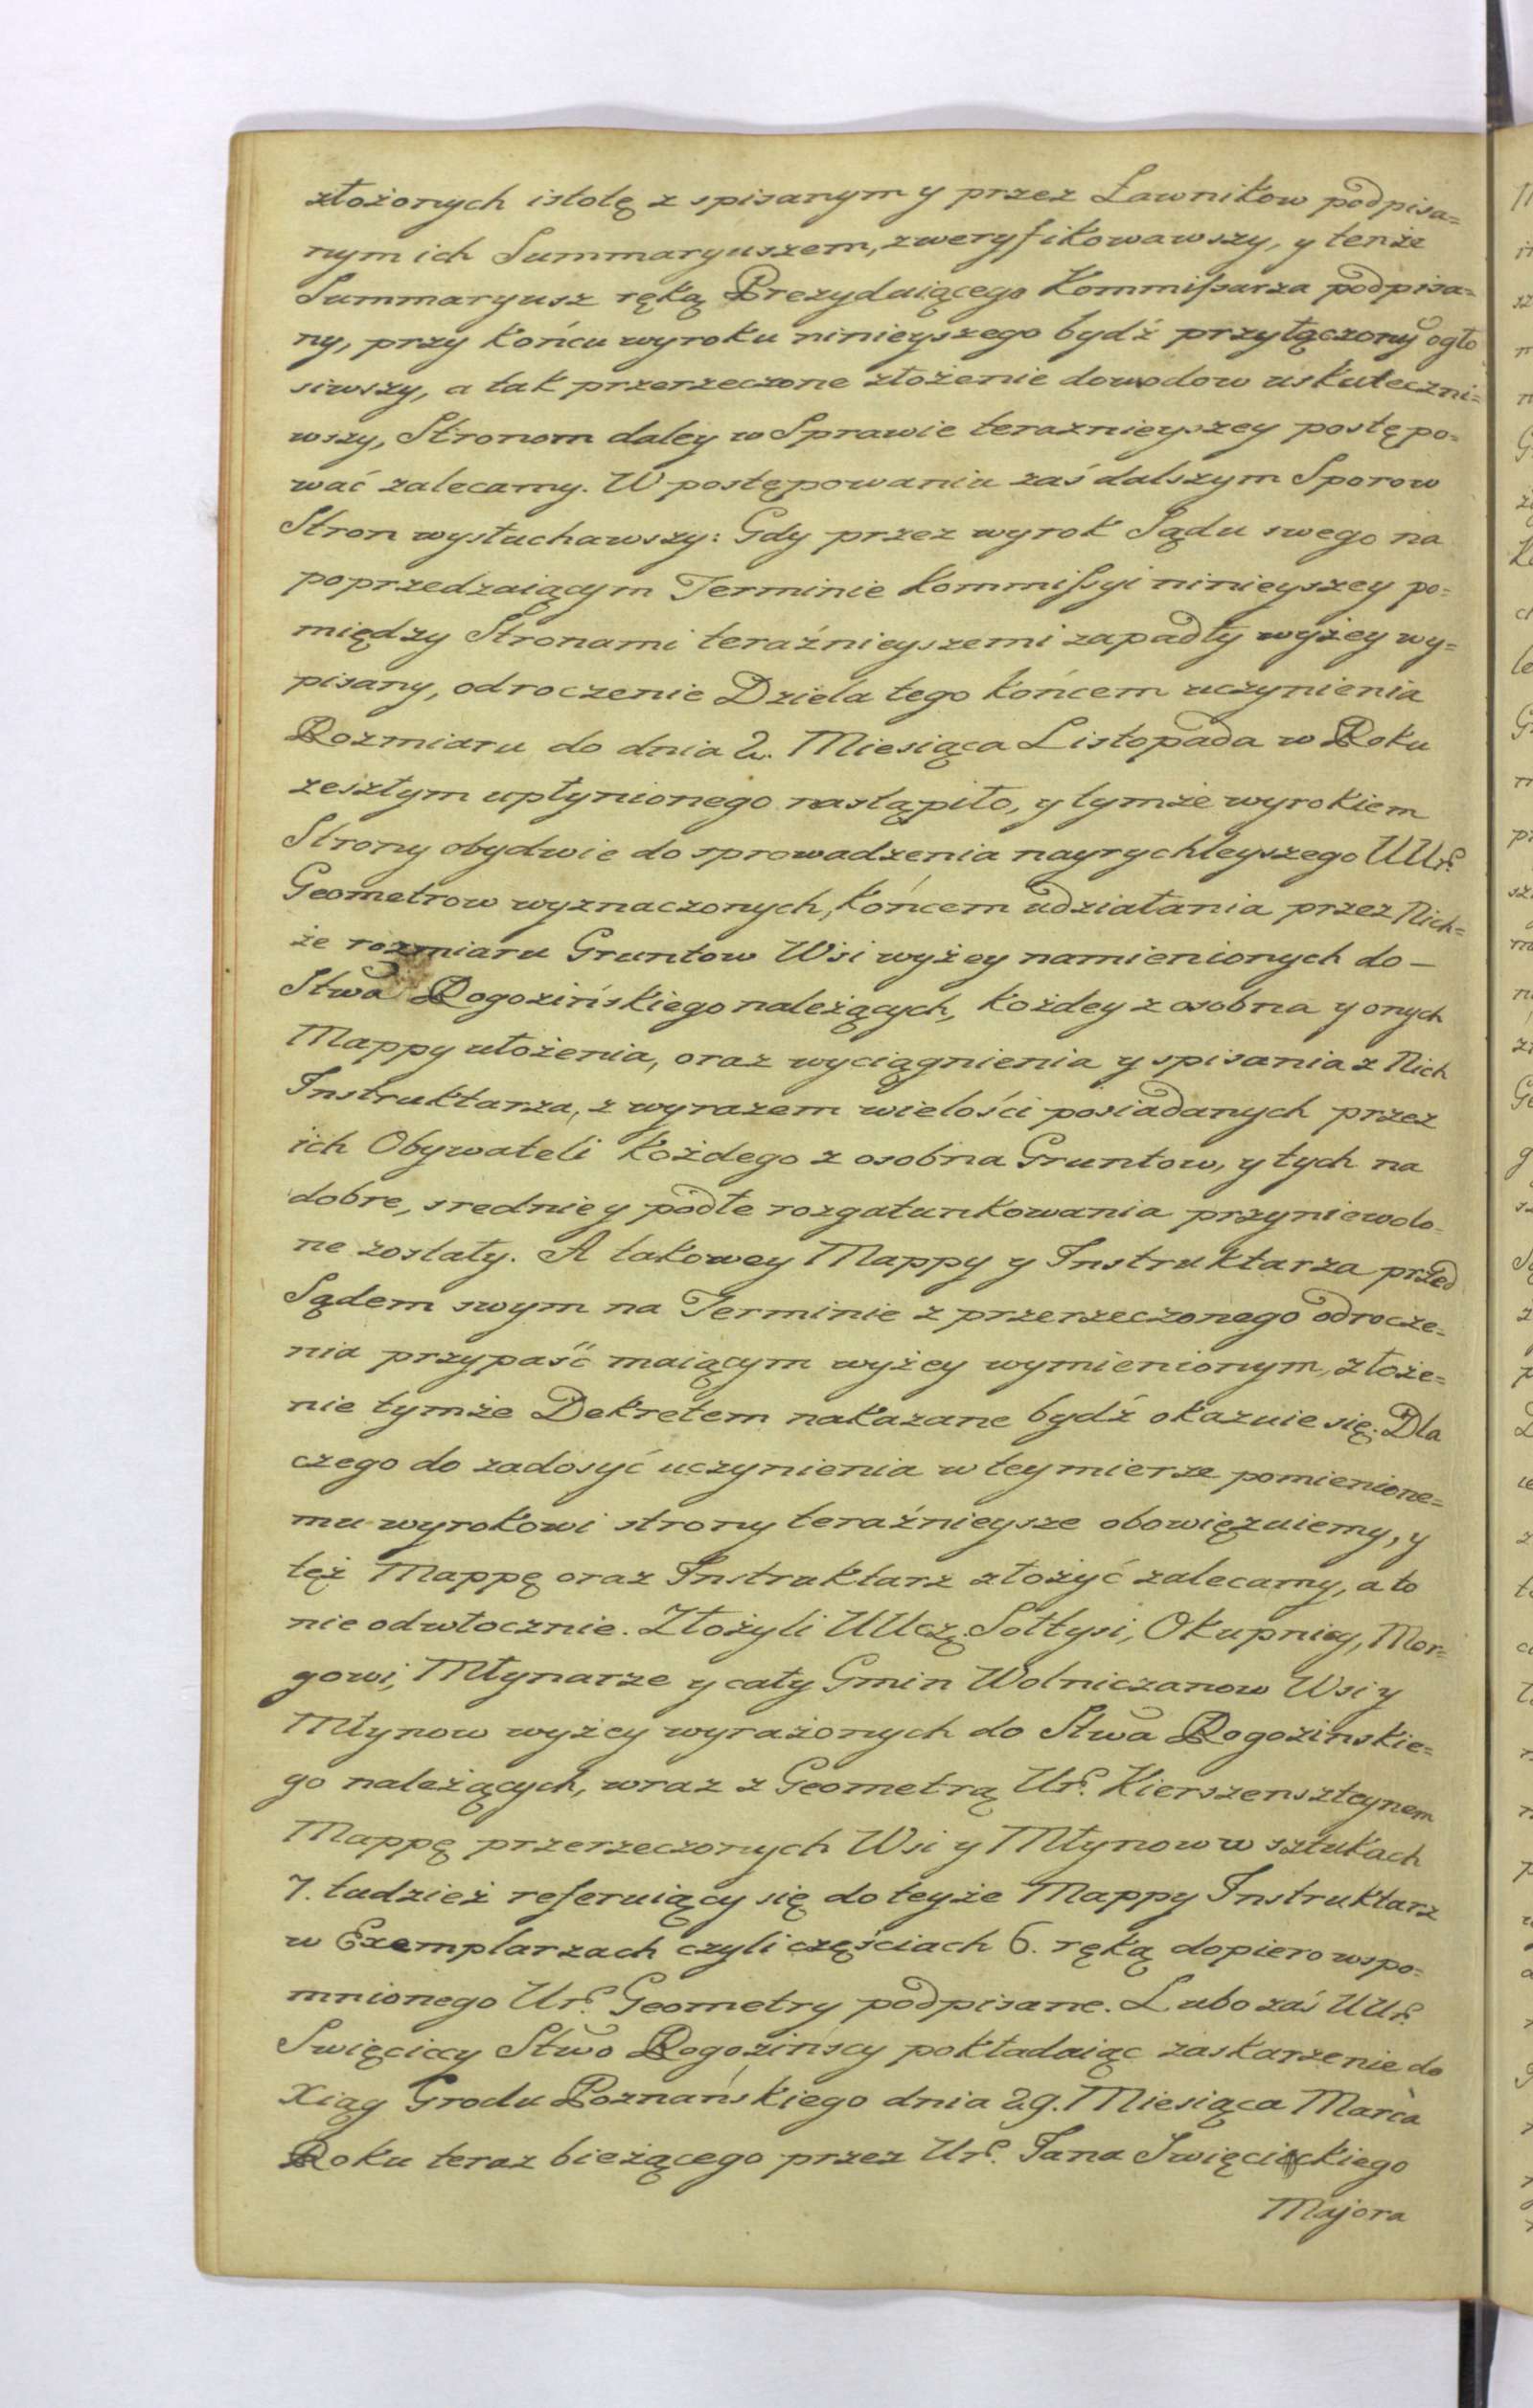 złożonych istotę z spisanym y przez Ławnikow podpisa=
nym ich Summaryuszem, zweryfikowawszy, y tenże
Summaryusz ręką Prezyduiącego Kommissarza podpisa=
ny, przy końcu wyroku ninieyszego bydź przyłączony ogło
siwszy, a tak przerzeczone złożenie dowodow uskuteczni=
wszy, Stronom daley w Sprawie teraznieyszey postępo=
wać zalecamy. W postępowaniu zaś dalszym Sporow
Stron wysłuchawszy: Gdy przez wyrok Sądu swego na
poprzedzaiącym Terminie Kommissyi ninieyszey po=
między Stronami teraźnieyszemi zapadły wyżey wy=
pisany, odroczenie Dzieła tego końcem uczynienia
Rozmiaru do dnia 2. Miesiąca Listopada w Roku
zeszłym upłynionego nastąpiło, y tymże wyrokiem
Strony obydwie do sprowadzenia nayrychleyszego UUr.
Geometrow wyznaczonych, końcem udziałania przez Nich=
że rozmiaru Gruntow Wsi wyżey namienionych do-
Stwa Rogozińskiego należących, każdey z osobna y onych
Mappy ułożenia, oraz wyciągnienia y spisania z Nich
Instruktarza, z wyrazem wielości posiadanych przez
ich Obywateli każdego z osobna Gruntow, y tych na
dobre, srednie y podłe rozgatunkowania przyniewolo-
ne zostały. A takowey Mappy y Instruktarza przed
Sądem swym na Terminie z przerzeczonego odrocze=
nia przypaść maiącym wyżey wymienionym, złoże=
nie tymże Dekretem nakazane bydź okazuie się. Dla
czego do zadosyć uczynienia w tey mierze pomienione=
mu wyrokowi strony teraźnieysze obowięzuiemy, y
też Mappę oraz Instruktarz złożyć zalecamy, a to
nieodwłocznie. Złożyli UUczę. Sołtysi, Okupnicy, Mor=
gowi, Młynarze y cały Gmin Wolniczanow Wsi y
Młynow wyżey wyrażonych do Stwa Rogozinskie=
go należących, wraz z Geometrą Ur. Kierszenszteynem
Mappę przerzeczonych Wsi y Młynow w sztukach
7. tudzież referuiący się do teyże Mappy Instruktarz
w Exemplarzach czyli częściach 6. ręką dopiero wspo=
mnionego Ur. Geometry podpisane. Lubo zaś UUr.
Swięciccy Stwo Rogozińscy pokładaiąc zaskarzenie do
Xiąg Grodu Poznańskiego dnia 29. Miesiąca Marca
Roku teraz bieżącego przez Ur. Jana Swięcickiego
Majora